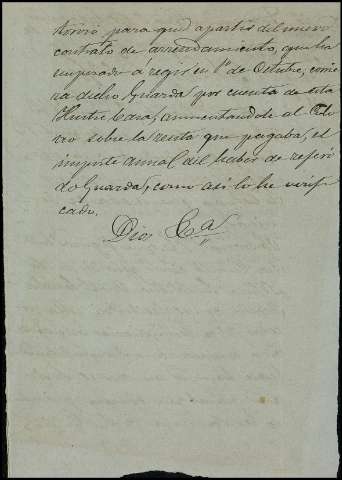 para que á partir del nuevo
contrato de arrendamiento, que ha
empezado á regir en 1º de Octubre, corrie
ra dicho Guarda por cuenta de esta
Ilustre Casa, aumentandole al
sobre la renta que pagaba, el
importe annual del haber de referi
do Guarda, como asi lo he verifi
cado.
Dios Ca